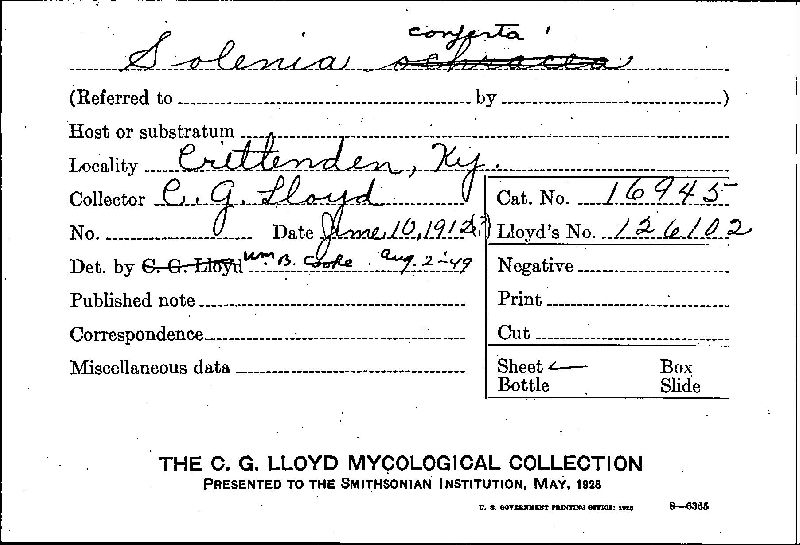 conferta
Solenia ochracea
(Referred to by )
Host or substratum
Locality Crittenden, Ky.
Collector C. G. Lloyd
Cat. No. 16945
No. Date June 10, 1912(?)
Lloyd's No. 126102
Det. by C. G. Lloyd Wm B. Cooke Aug. 2-49
Negative
Published note
Print
Correspondence
Cut
Miscellaneous data
Sheet Box
Bottle Slide
THE C. G. LLOYD MYCOLOGICAL COLLECTION
PRESENTED TO THE SMITHSONIAN INSTITUTION, MAY, 1928
U. S. GOVERNMENT PRINTING OFFICE: 1928 8—6365